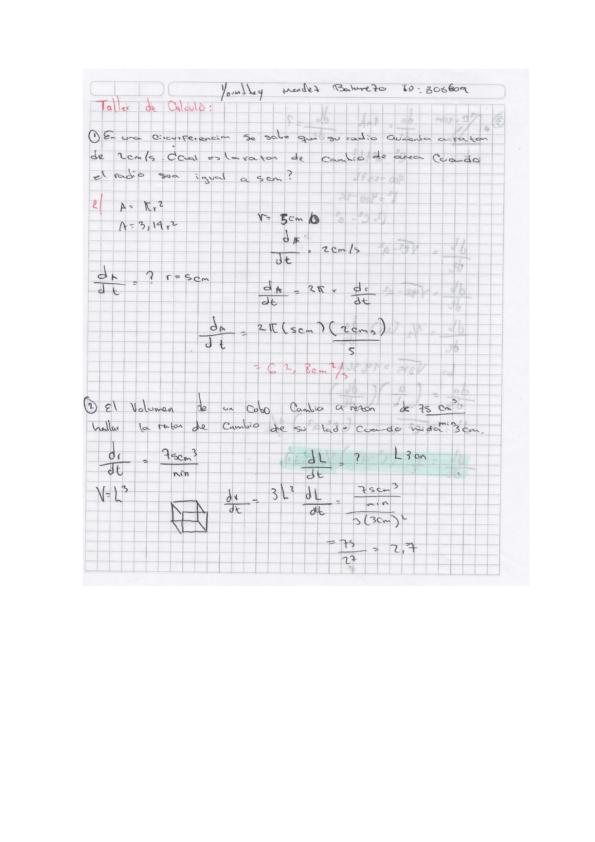 Mendez ID: 805609
Taller de Calculo:
① En una circunferencia se sabe que su radio aumenta a razon
de 2cm/s. ¿cual es la razon de cambio de area cuando
el radio sea igual a 5cm?
A = πr²
A = 3,14r²
r = 5cm
dr/dt = 2cm/s
dA/dt = ? r = 5cm
dA/dt = 2π r dr/dt
dA/dt = 2π (5cm) (2cm/s)
= 62,8cm²/s
② El Volumen de un Cubo Cambia a razon de 75 cm³/min
hallar la razon de Cambio de su lado cuando mida 3cm.
dv/dt = 75cm³/min
dL/dt = ? L 3cm
V = L³
dv/dt = 3L² dL/dt = 75cm³/min / 3(3cm)²
= 75/27 = 2,7